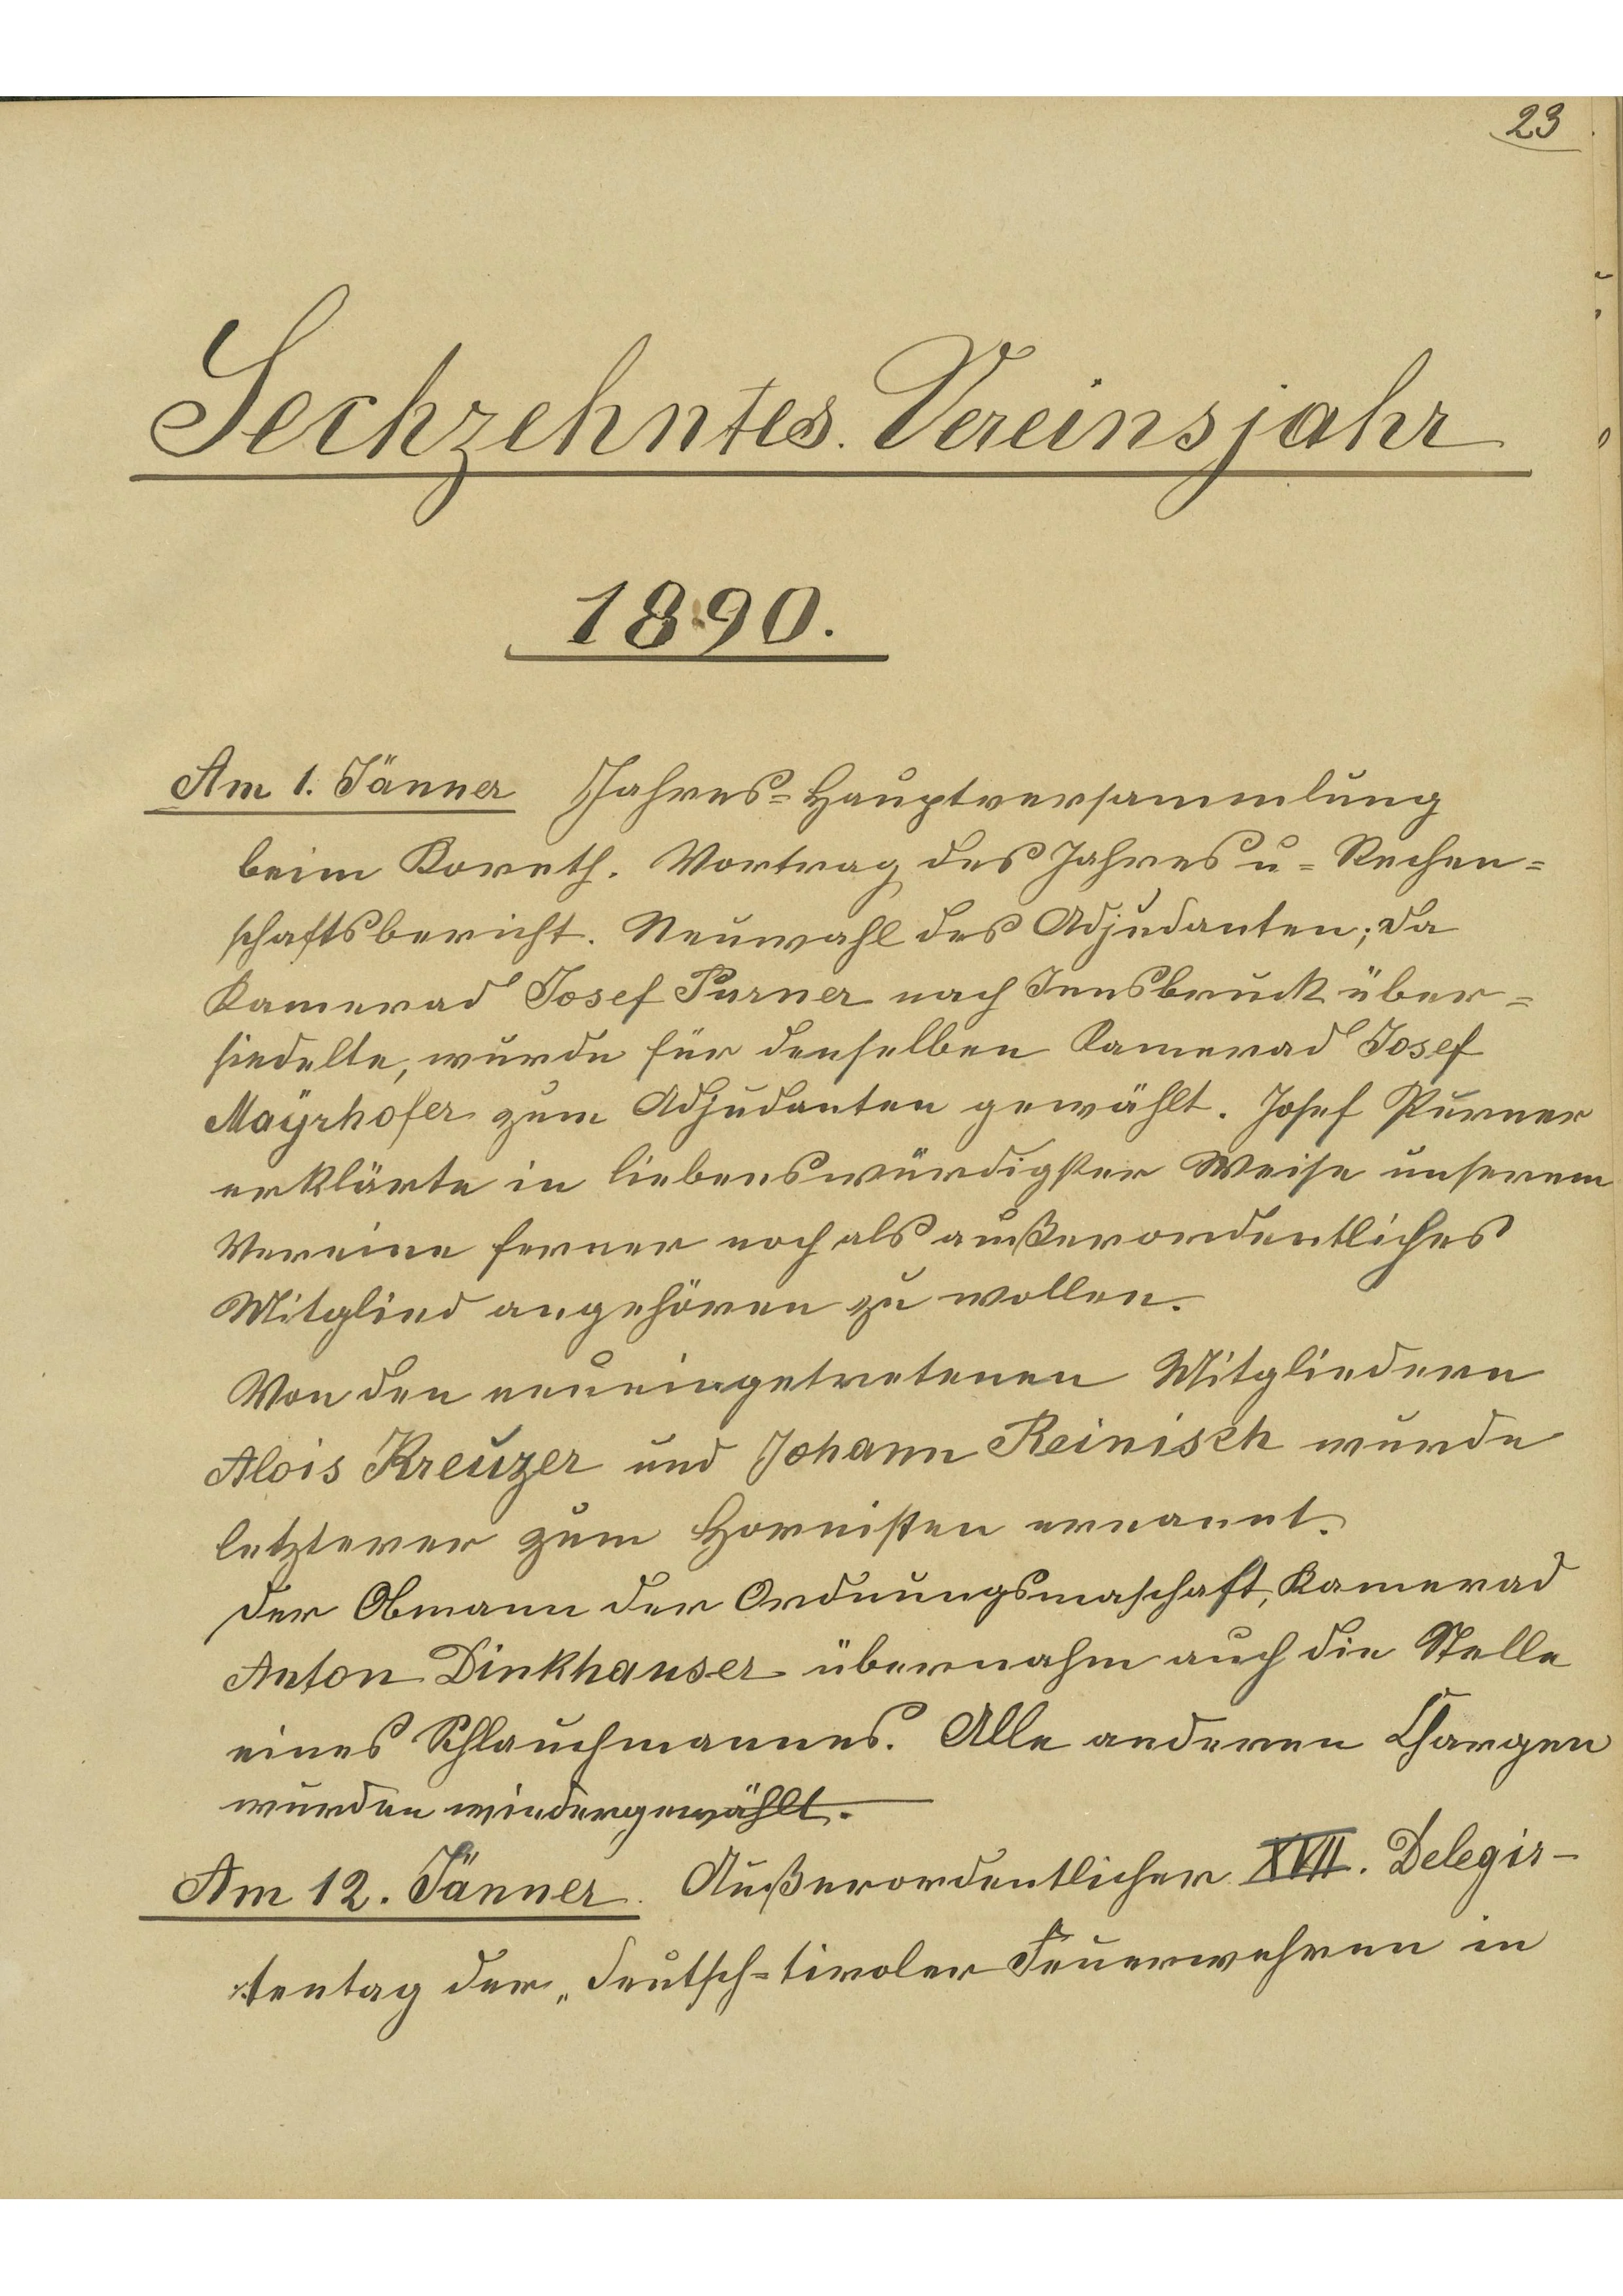 23
Sechzehntes Vereinsjahr
1890.
Am 1. Jänner Jahres=Hauptversammlung
beim Koreth. Vortrag des Jahres u= Rechen=
schaftsbericht. Neuwahl des Adjudanten; da
Kamerad Josef Purner nach Innsbruck über=
siedelte, wurde für denselben Kamerad Josef
Mayrhofer zum Adjudanten gewählt. Josef Purner
erklärte in liebenswürdigster Weise unserem
Vereine ferner noch als außerordentliches
Mitglied angehören zu wollen.
Von den neueingetretenen Mitgliedern
Alois Kreuzer und Johann Reinisch wurde
letzterer zum Hornisten ernannt.
Der Obmann der Ordnungsmaschaft, Kamerad
Anton Dinkhauser übernahm auch die Stelle
eines Schlauchmannes. Alle anderen Chargen
wurden wiedergewählt.
Am 12. Jänner. Außerordentlicher XVII. Delegir-
tentag der „deutsch=tiroler Feuerwehren in